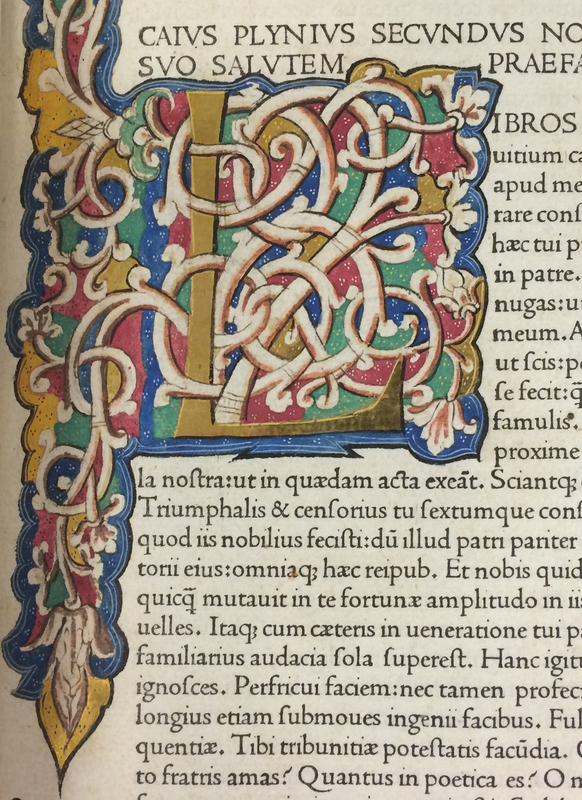 CAIVS PLYNIVS SECVNDVS NO
SVO SALVTEM PRAEFA
L
IBROS
uitium ca
apud me
rare conſ
hæc tui p
in patre.
nugas:u
meum. A
ut ſcis:pe
ſe fecit:q̃
famulis.
proxime
la noſtra:ut in quædam acta exeāt. Sciantq;
Triumphalis & cenſorius tu ſextumque conſ
quod iis nobilius feciſti:dū illud patri pariter
torii eius:omniaq; hæc reipub. Et nobis quid
quicq̃ mutauit in te fortunæ amplitudo in iis
uelles. Itaq; cum cæteris in ueneratione tui p
familiarius audacia ſola ſupereſt. Hanc igitu
ignoſces. Perfricui faciem:nec tamen profec
longius etiam ſubmoues ingenii facibus. Ful
quentiæ. Tibi tribunitiæ poteſtatis facūdia.
to fratris amas? Quantus in poetica es? O m